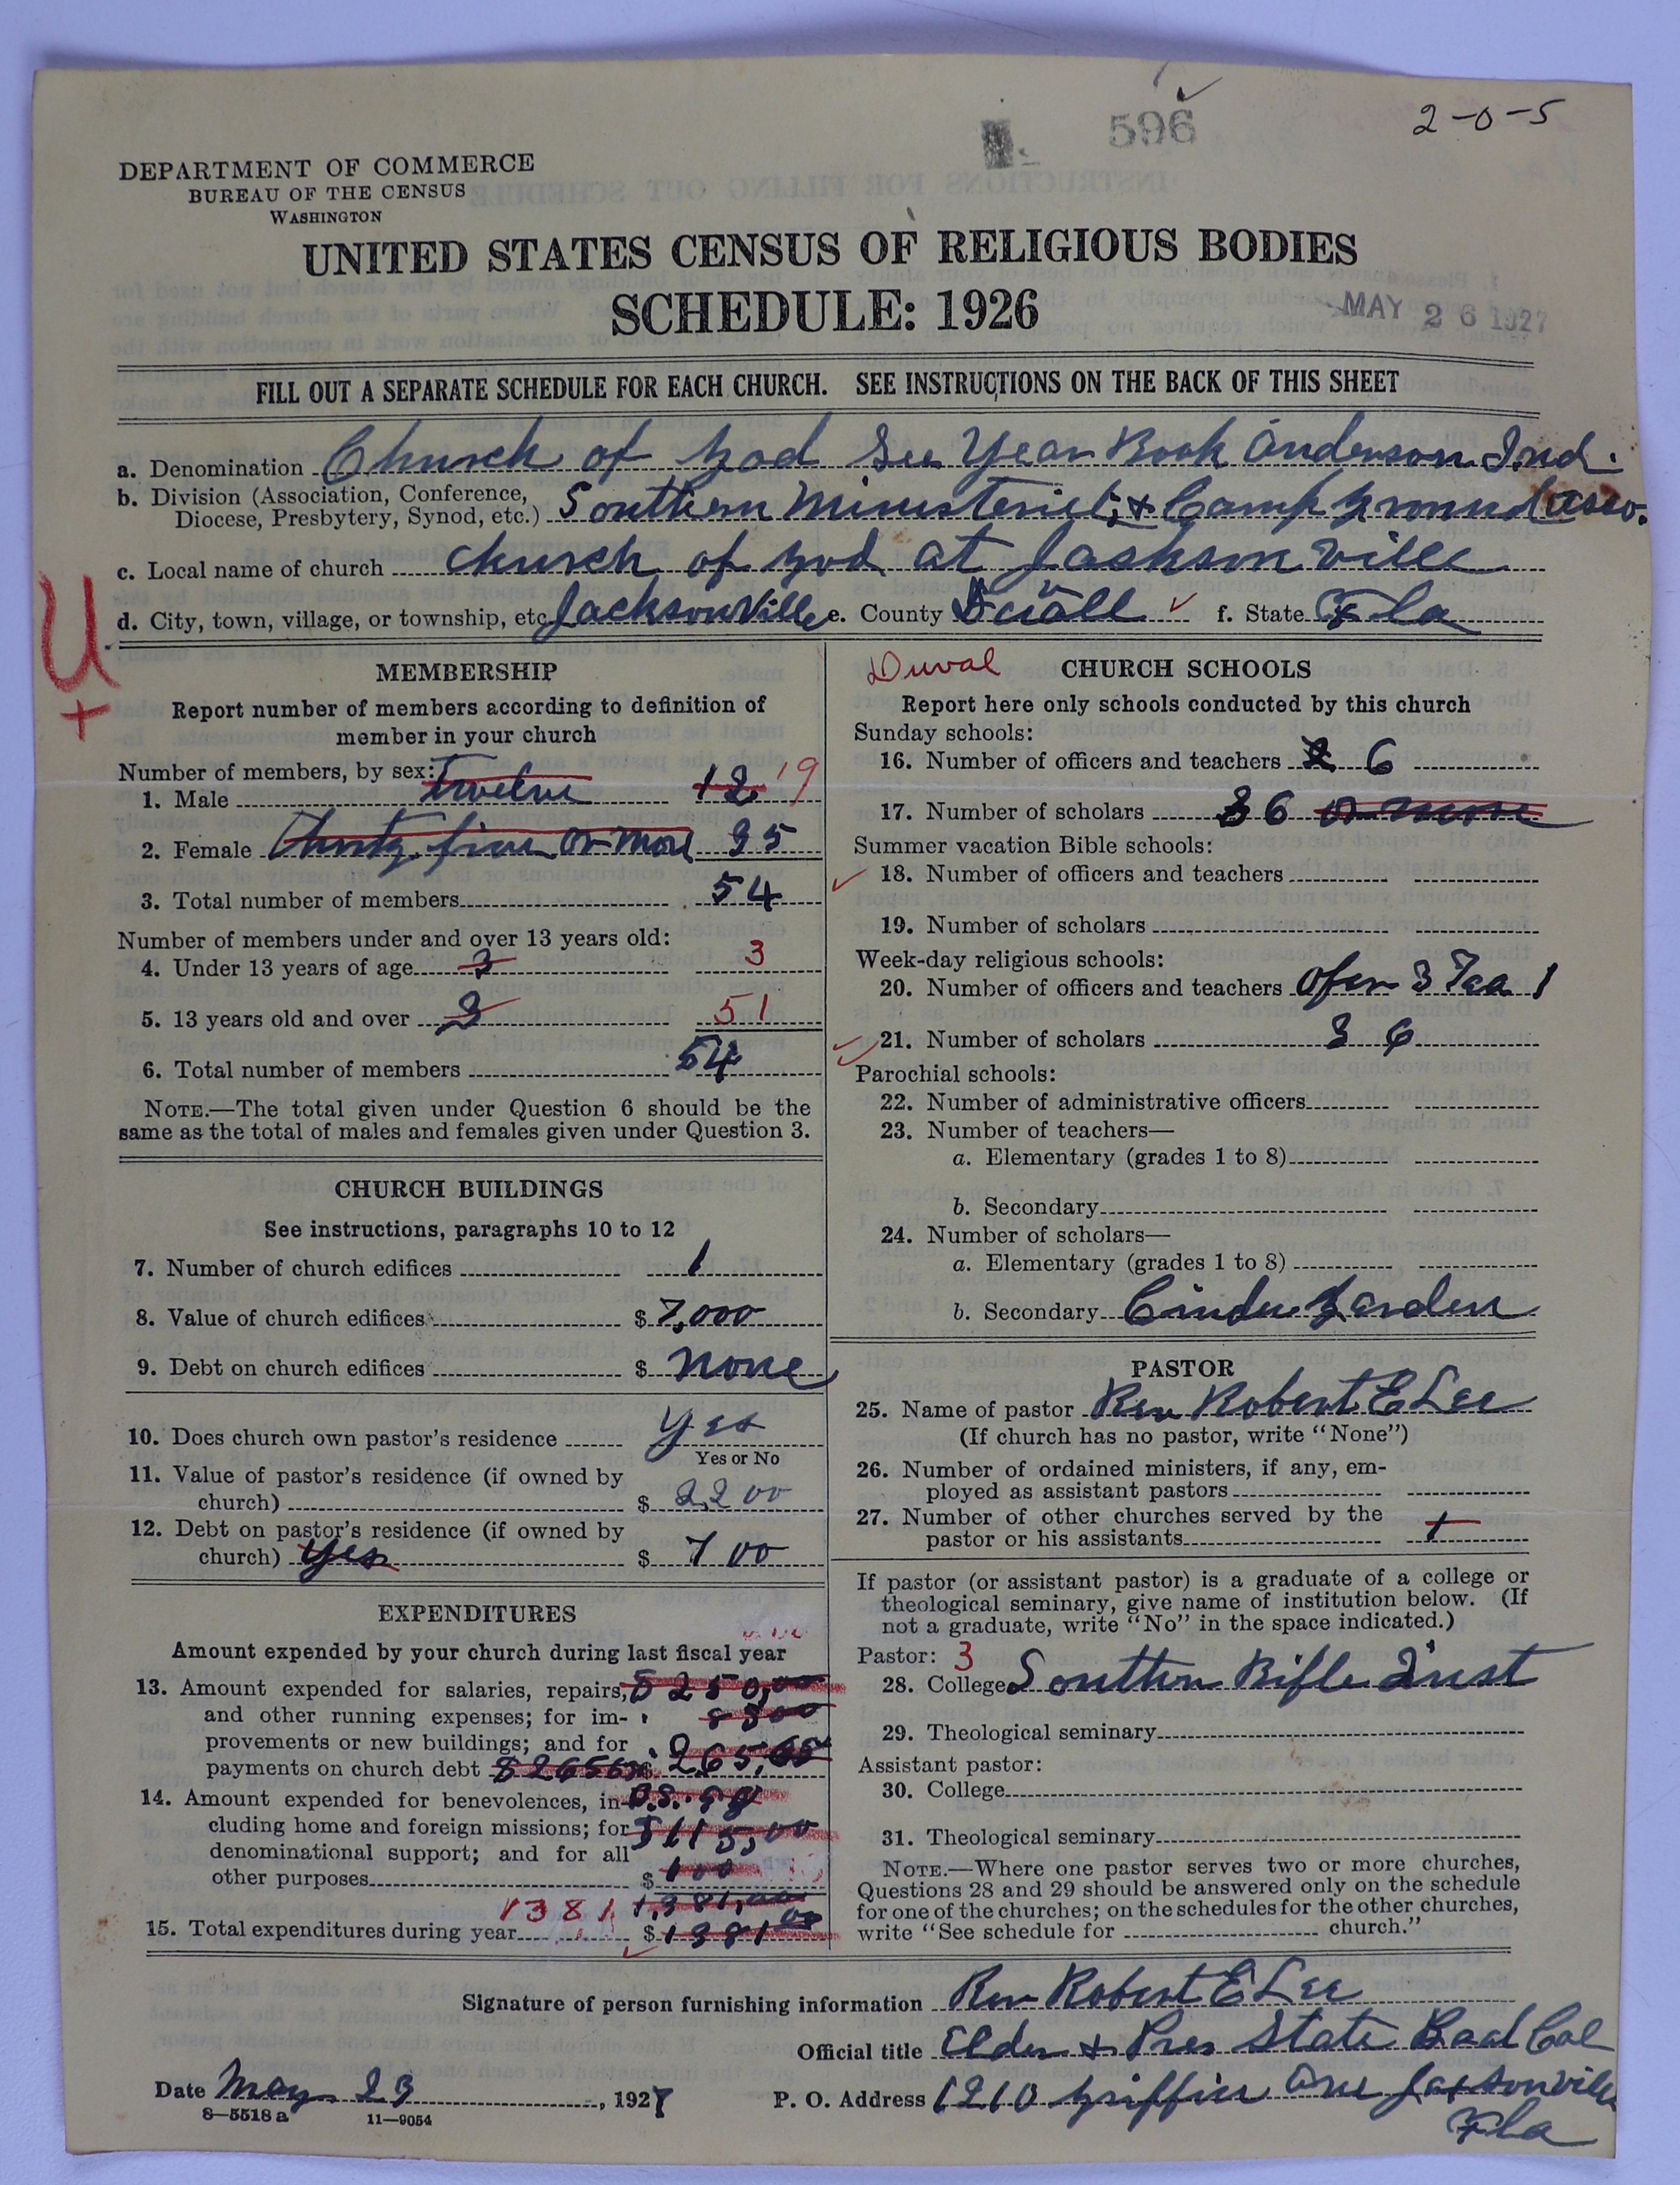 596
2-0-5
DEPARTMENT OF COMMERCE
BUREAU OF THE CENSUS
WASHINGTON
UNITED STATES CENSUS OF RELIGIOUS BODIES
SCHEDULE: 1926
MAY 26 1927
FILL OUT A SEPARATE SCHEDULE FOR EACH CHURCH. SEE INSTRUCTIONS ON THE BACK OF THIS SHEET
a. Denomination Church of God See Year Book Anderson Ind.
b. Division (Association, Conference,
Diocese, Presbytery, Synod, etc.) Southern Ministeriel, & Camp ground asso.
c. Local name of church church of god at Jacksonville
d. City, town, village, or township, etc Jacksonville e. County Duall f. State Fla
U
+
MEMBERSHIP
Report number of members according to definition of
member in your church
Number of members, by sex:
1. Male twelve 12 19
2. Female Thirty five or more 35
3. Total number of members 54
Number of members under and over 13 years old:
4. Under 13 years of age 3 3
5. 13 years old and over 51
6. Total number of members 54
NOTE.—The total given under Question 6 should be the
same as the total of males and females given under Question 3.
CHURCH BUILDINGS
See instructions, paragraphs 10 to 12
7. Number of church edifices 1
8. Value of church edifices $ 7,000
9. Debt on church edifices $ none
10. Does church own pastor's residence yes
Yes or No
11. Value of pastor's residence (if owned by
church) $ 2200
12. Debt on pastor's residence (if owned by
church) yes $ 700
EXPENDITURES
Amount expended by your church during last fiscal year
13. Amount expended for salaries, repairs,
and other running expenses; for im-
provements or new buildings; and for
payments on church debt $ 265,65
14. Amount expended for benevolences, in-
cluding home and foreign missions; for $115,00
denominational support; and for all
other purposes $ 100
1381 1,381,00
15. Total expenditures during year $ 1381 00
Duval
CHURCH SCHOOLS
Report here only schools conducted by this church
Sunday schools:
16. Number of officers and teachers 6
17. Number of scholars 36 or more
Summer vacation Bible schools:
18. Number of officers and teachers
19. Number of scholars
Week-day religious schools:
20. Number of officers and teachers 3 1
21. Number of scholars 36
Parochial schools:
22. Number of administrative officers
23. Number of teachers—
a. Elementary (grades 1 to 8)
b. Secondary
24. Number of scholars—
a. Elementary (grades 1 to 8)
b. Secondary Cinder Garden
PASTOR
25. Name of pastor Rev Robert E Lee
(If church has no pastor, write "None")
26. Number of ordained ministers, if any, em-
ployed as assistant pastors
27. Number of other churches served by the
pastor or his assistants 1
If pastor (or assistant pastor) is a graduate of a college or
theological seminary, give name of institution below. (If
not a graduate, write "No" in the space indicated.)
Pastor: 3
28. College Southern Bible Inst
29. Theological seminary
Assistant pastor:
30. College
31. Theological seminary
NOTE.—Where one pastor serves two or more churches,
Questions 28 and 29 should be answered only on the schedule
for one of the churches; on the schedules for the other churches,
write "See schedule for church."
Signature of person furnishing information Rev Robert E Lee
Official title Elder & Pres State Boad Col
Date May 23, 1927
P. O. Address 1210 Griffin Ave Jacksonville
Fla
8—5518 a 11—9054